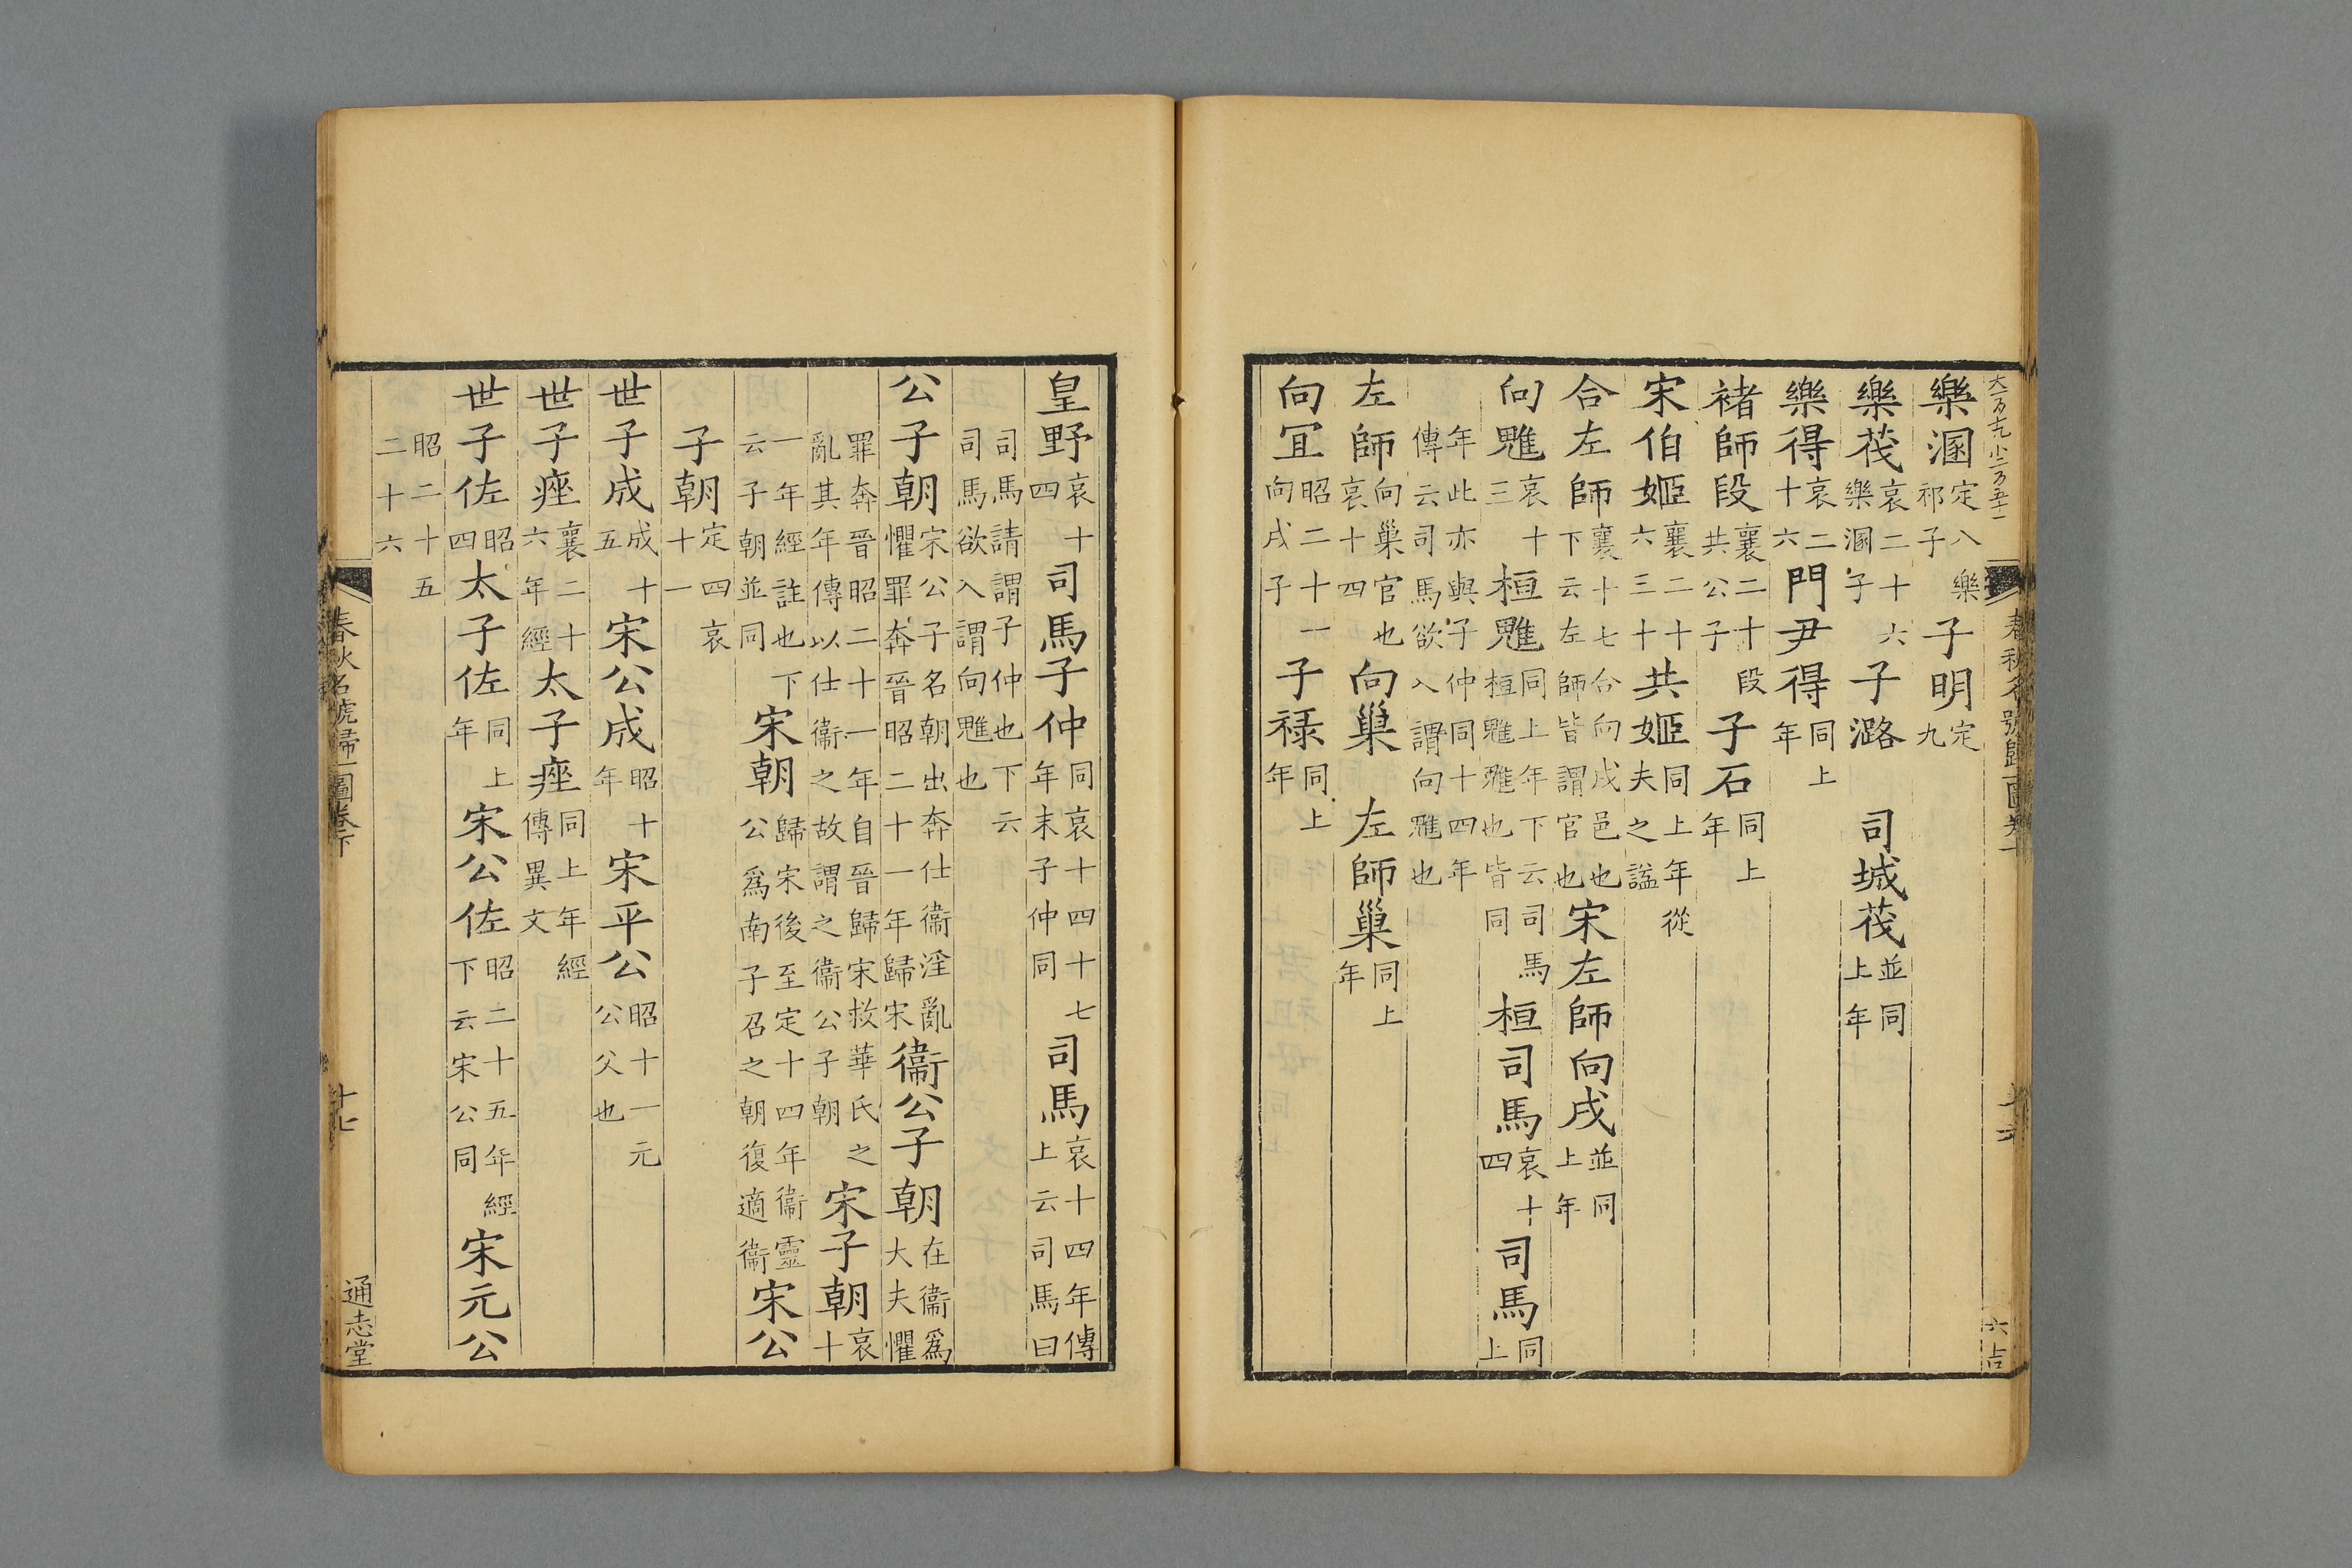 樂溷定八樂祁子子明定九
樂茷哀二十六樂溷子子潞司城茷並同上年
樂得哀二十六門尹得同上年
褚師段襄二十段共公子子石同上年
宋伯姬襄二十六三十共姬同上年從夫之諡
合左師襄十七合向戌邑也下云左師皆謂官也宋左師向戌並同上年
向魋哀十三桓魋同上年下云司馬桓魋魋也皆同桓司馬哀十四司馬同上
年此亦與子仲同十四年傳云司馬欲入謂向魋也
左師向巢官也哀十四向巢左師巢同上年
向宜昭二十一向戌子子祿同上年
皇野哀十四司馬子仲同哀十四十七年末子仲同司馬哀十四年傳上云司馬曰
司馬請謂子仲也下云司馬欲入謂向魋也
公子朝宋公子名朝出奔仕衞淫亂懼罪奔晉昭二十一年歸宋衞公子朝在衞爲大夫懼
罪奔晉昭二十一年自晉歸宋救華氏之亂其年傳以仕衞之故謂之衞公子朝宋子朝哀十
一年經註也下云子朝並同宋朝歸宋後至定十四年衞靈公爲南子召之朝復適衞宋公
子朝定四哀十一
世子成成十五宋公成昭十年宋平公昭十一元公父也
世子痤襄二十六年經太子痤同上年經傳異文
世子佐昭四太子佐同上年宋公佐昭二十五年經下云宋公同宋元公
昭二十五二十六
春秋名號歸一圖卷下
十七
通志堂